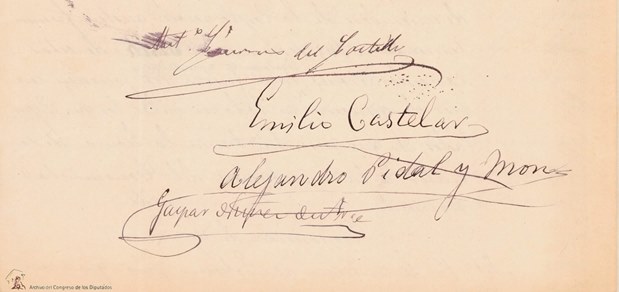 del Castillo
Emilio Castelar
Alejandro Pidal y Mon
Gaspar Núñez de Arce
Archivo del Congreso de los Diputados